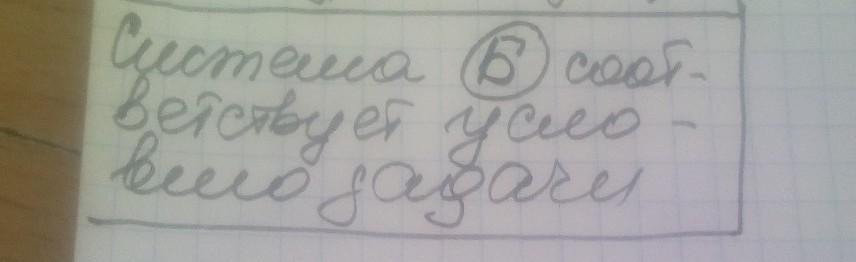 Система Б соот-
ветствует усло-
вию задачи